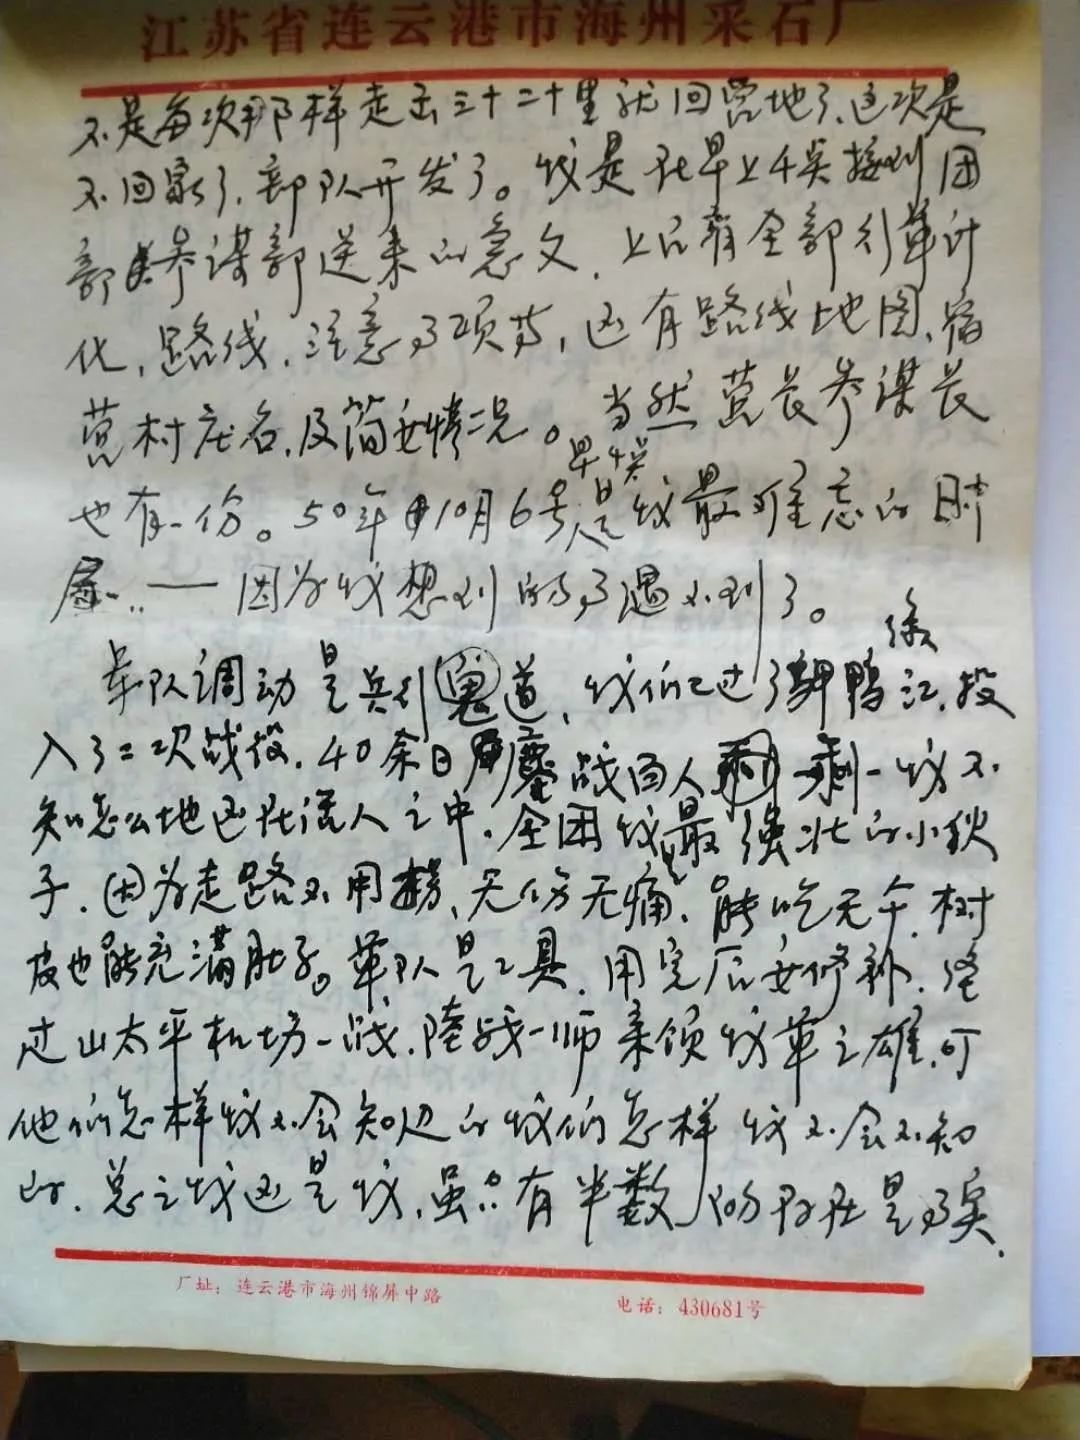 江苏省连云港市海州采石厂
不是每次那样走去三十二十里就回营地了,这次是
不回家了,部队开发了。我是在早上4点接到团
部参谋部送来的急文,上only有全部行军计
化,路线,注意事项等,还有路线地图,宿
营村庄名,及简要情况。当然营长参谋长
早4点
也有一份。50年10月6号是我最难忘的时
——因为我想到的事遇不到了。
绿
军队调动是兵行鬼道,我们已过了鸭江,投
入了二次战役,40余日鏖战百人剩一我不
知怎么地还在活人之中,全团我最强壮的小伙
子,因为走路不用,无伤无痛,能吃无午,树
皮也能充满肚子。军队是工具,用完后要修补,经
过山太平机场一战,陆战一师来领我军之雄,可
他们怎样我不会知道的我们怎样我不会不知
的,总之我还是我,虽只有半数的存在是事实,
厂址:连云港市海州锦屏中路
电话:430681号